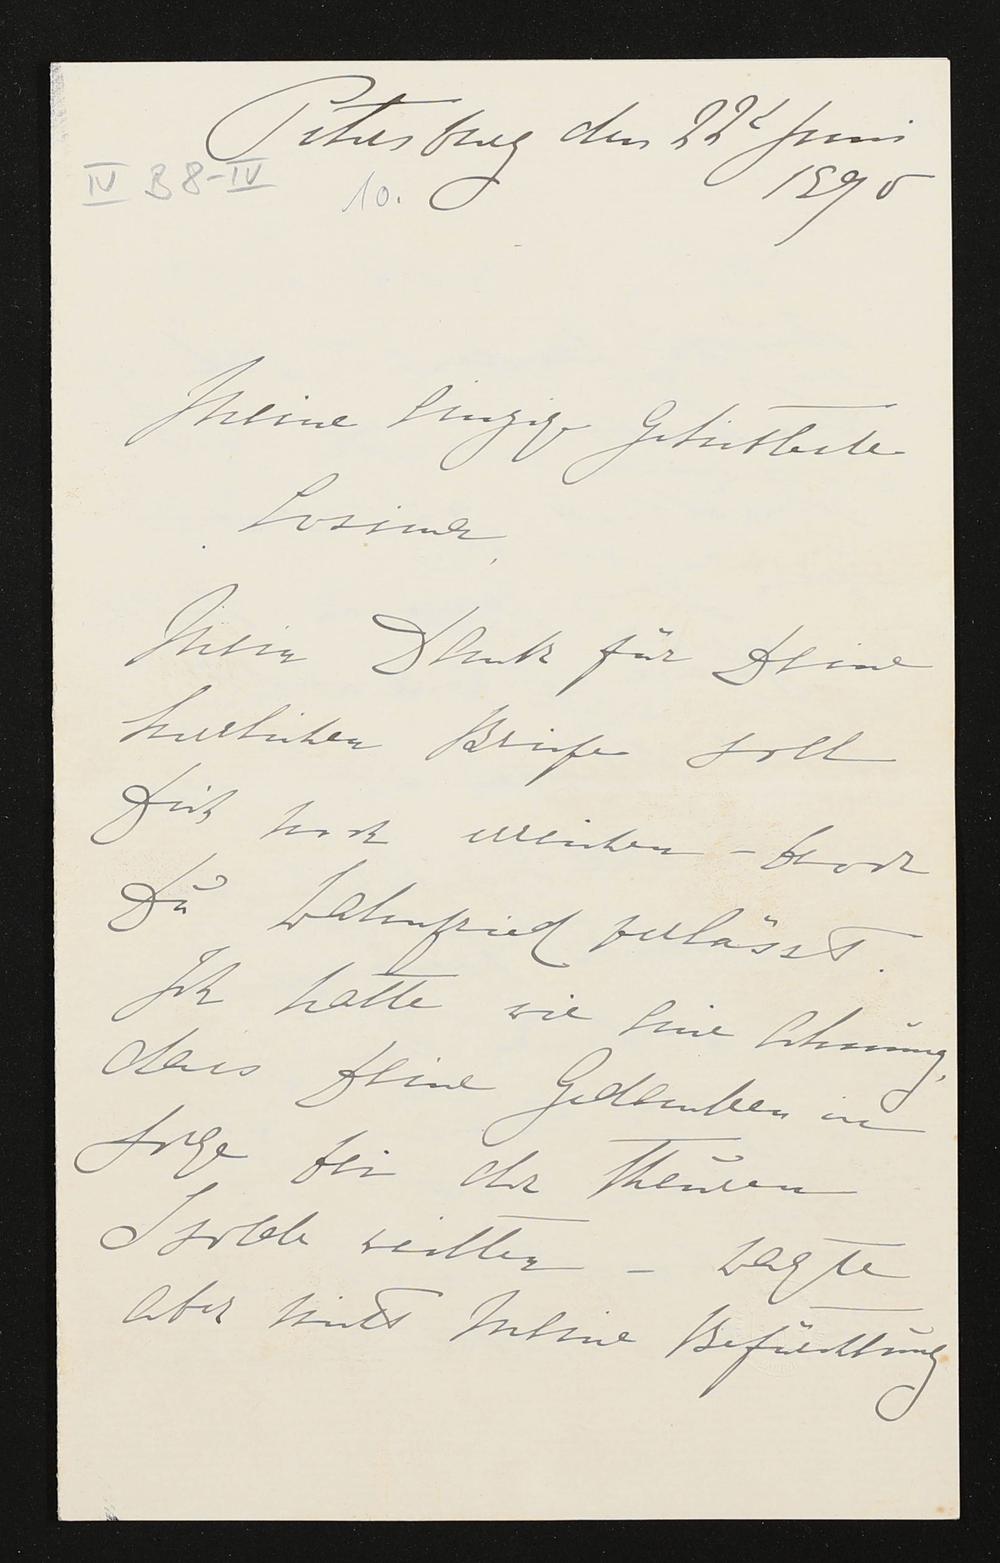 Petersburg den 22t Juni
1890
IV B 8-IV
10.
Meine einzige Geliebteste
Cosima
Mein Dank für Deine
herrlichen Briefe soll
Dich noch erreichen - bevor
Du Wahnfried verlässt.
Ich hatte wie eine Ahnung,
dass Deine Gedanken in
Sorge bei der Theuren
Isolde weilten - wagte
aber nicht meine Befürchtung